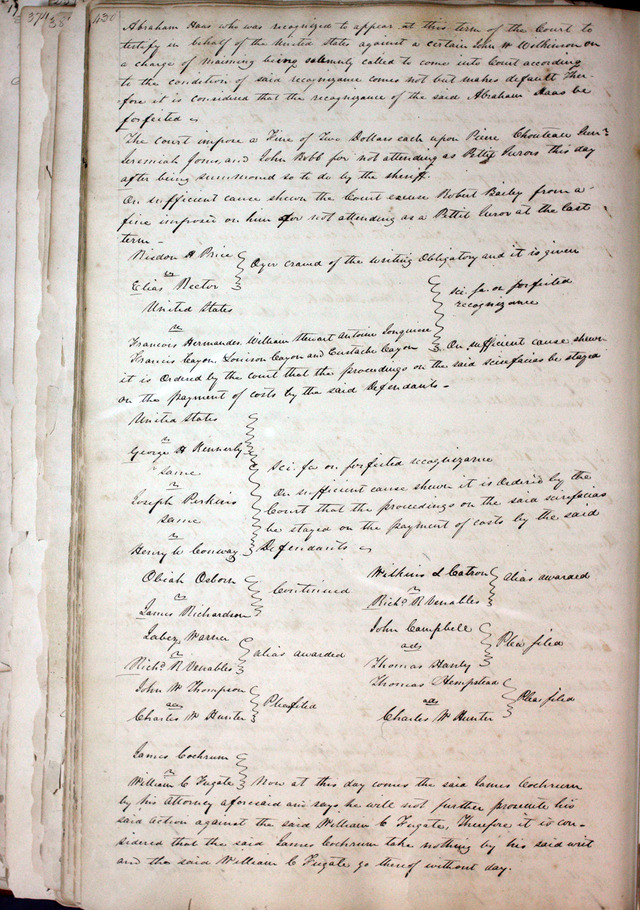 430
Abraham Haas who was recognized to appear at this term of the Court to
testify in behalf of the United States against a certain John W Wilkinson on
a charge of maiming being solemnly called to come into Court according
to the condition of said recognizance comes not but makes default There-
fore it is considered that the recognizance of the said Abraham Haas be
forfeited
The court impose a Fine of Two Dollars each upon Pierre Chouteau Junr
Jeremiah Jones, and John Bobb for not attending as Petit Jurors this day
after being summoned so to do by the sheriff
On sufficient cause shewn the Court excuse Robert Bailey from a
fine imposed on him for not attending as a Pettit Juror at the last
term -
Risdon H Price
vs
Elias Rector
Oyer craved of the writing Obligatory and it is given
United States
vs
Francois Hermandes William Stewart Antoine
Francis Cayon, Louison Cayon and Eustache Cayon
sci. fa on forfeited
recognizance
On sufficient cause shewn
it is Ordered by the court that the proceedings on the said scirefacias be stayed
on the payment of costs by the said Defendants -
United States
vs
George H Kennerly
same
vs
Joseph Perkins
same
vs
Henry W Conway
Sci. fa on forfeited recognizance
On sufficient cause shewn it is ordered by the
Court that the proceedings on the said scirefacias
be stayed on the payment of costs by the said
Defendants
Obiah Osborn
vs
James Richardson
Continued
Wilkins & Catron
vs
Richd R Venables
alias awarded
Jabez Warner
vs
Richd R Venables
alias awarded
John Campbell
ads
Thomas Hanly
Plea filed
John W Thompson
ads
Charles W Hunter
Plea filed
Thomas Hempstead
ads
Charles W Hunter
Plea filed
James Cochrum
vs
William C Fugate
Now at this day comes the said James Cochrum
by his Attorney aforesaid and says he will not further prosecute his
said action against the said William C Fugate, Therefore it is con-
sidered that the said James Cochrum take nothing by his said writ
and the said William C Fugate go thereof without day.